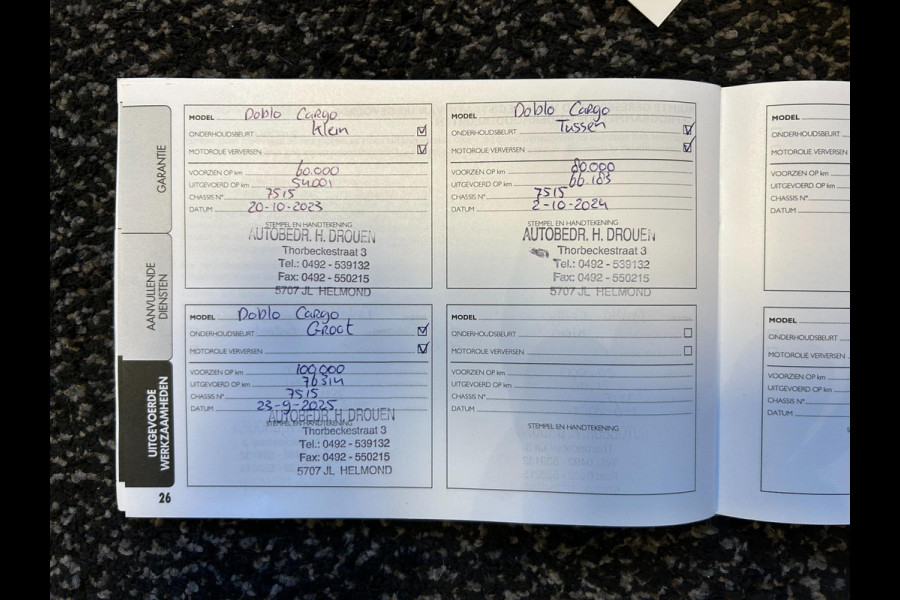 GARANTIE
AANVULLENDE
DIENSTEN
UITGEVOERDE
WERKZAAMHEDEN
26
MODEL Doblo Cargo
ONDERHOUDSBEURT Klein
MOTOROLIE VERVERSEN
VOORZIEN OP km 60.000
UITGEVOERD OP km 54.001
CHASSIS N° 7515
DATUM 20-10-2023
STEMPEL EN HANDTEKENING
AUTOBEDR. H. DROUEN
Thorbeckestraat 3
Tel.: 0492 - 539132
Fax: 0492 - 550215
5707 JL HELMOND
MODEL Doblo Cargo
ONDERHOUDSBEURT Tussen
MOTOROLIE VERVERSEN
VOORZIEN OP km 80.000
UITGEVOERD OP km 66.183
CHASSIS N° 7515
DATUM 2-10-2024
STEMPEL EN HANDTEKENING
AUTOBEDR. H. DROUEN
Thorbeckestraat 3
Tel.: 0492 - 539132
Fax: 0492 - 550215
5707 JL HELMOND
MODEL
ONDERHOUDSBEURT
MOTOROLIE VERVERSEN
VOORZIEN OP km
UITGEVOERD OP km
CHASSIS N°
DATUM
MODEL Doblo Cargo
ONDERHOUDSBEURT Groot
MOTOROLIE VERVERSEN
VOORZIEN OP km 100.000
UITGEVOERD OP km
CHASSIS N° 7515
DATUM 23-9-2025
STEMPEL EN HANDTEKENING
AUTOBEDR. H. DROUEN
Thorbeckestraat 3
Tel.: 0492 - 539132
Fax: 0492 - 550215
5707 JL HELMOND
MODEL
ONDERHOUDSBEURT
MOTOROLIE VERVERSEN
VOORZIEN OP km
UITGEVOERD OP km
CHASSIS N°
DATUM
STEMPEL EN HANDTEKENING
MODEL
ONDERHOUDSBEURT
MOTOROLIE VERVERSEN
VOORZIEN OP km
UITGEVOERD OP km
CHASSIS N°
DATUM